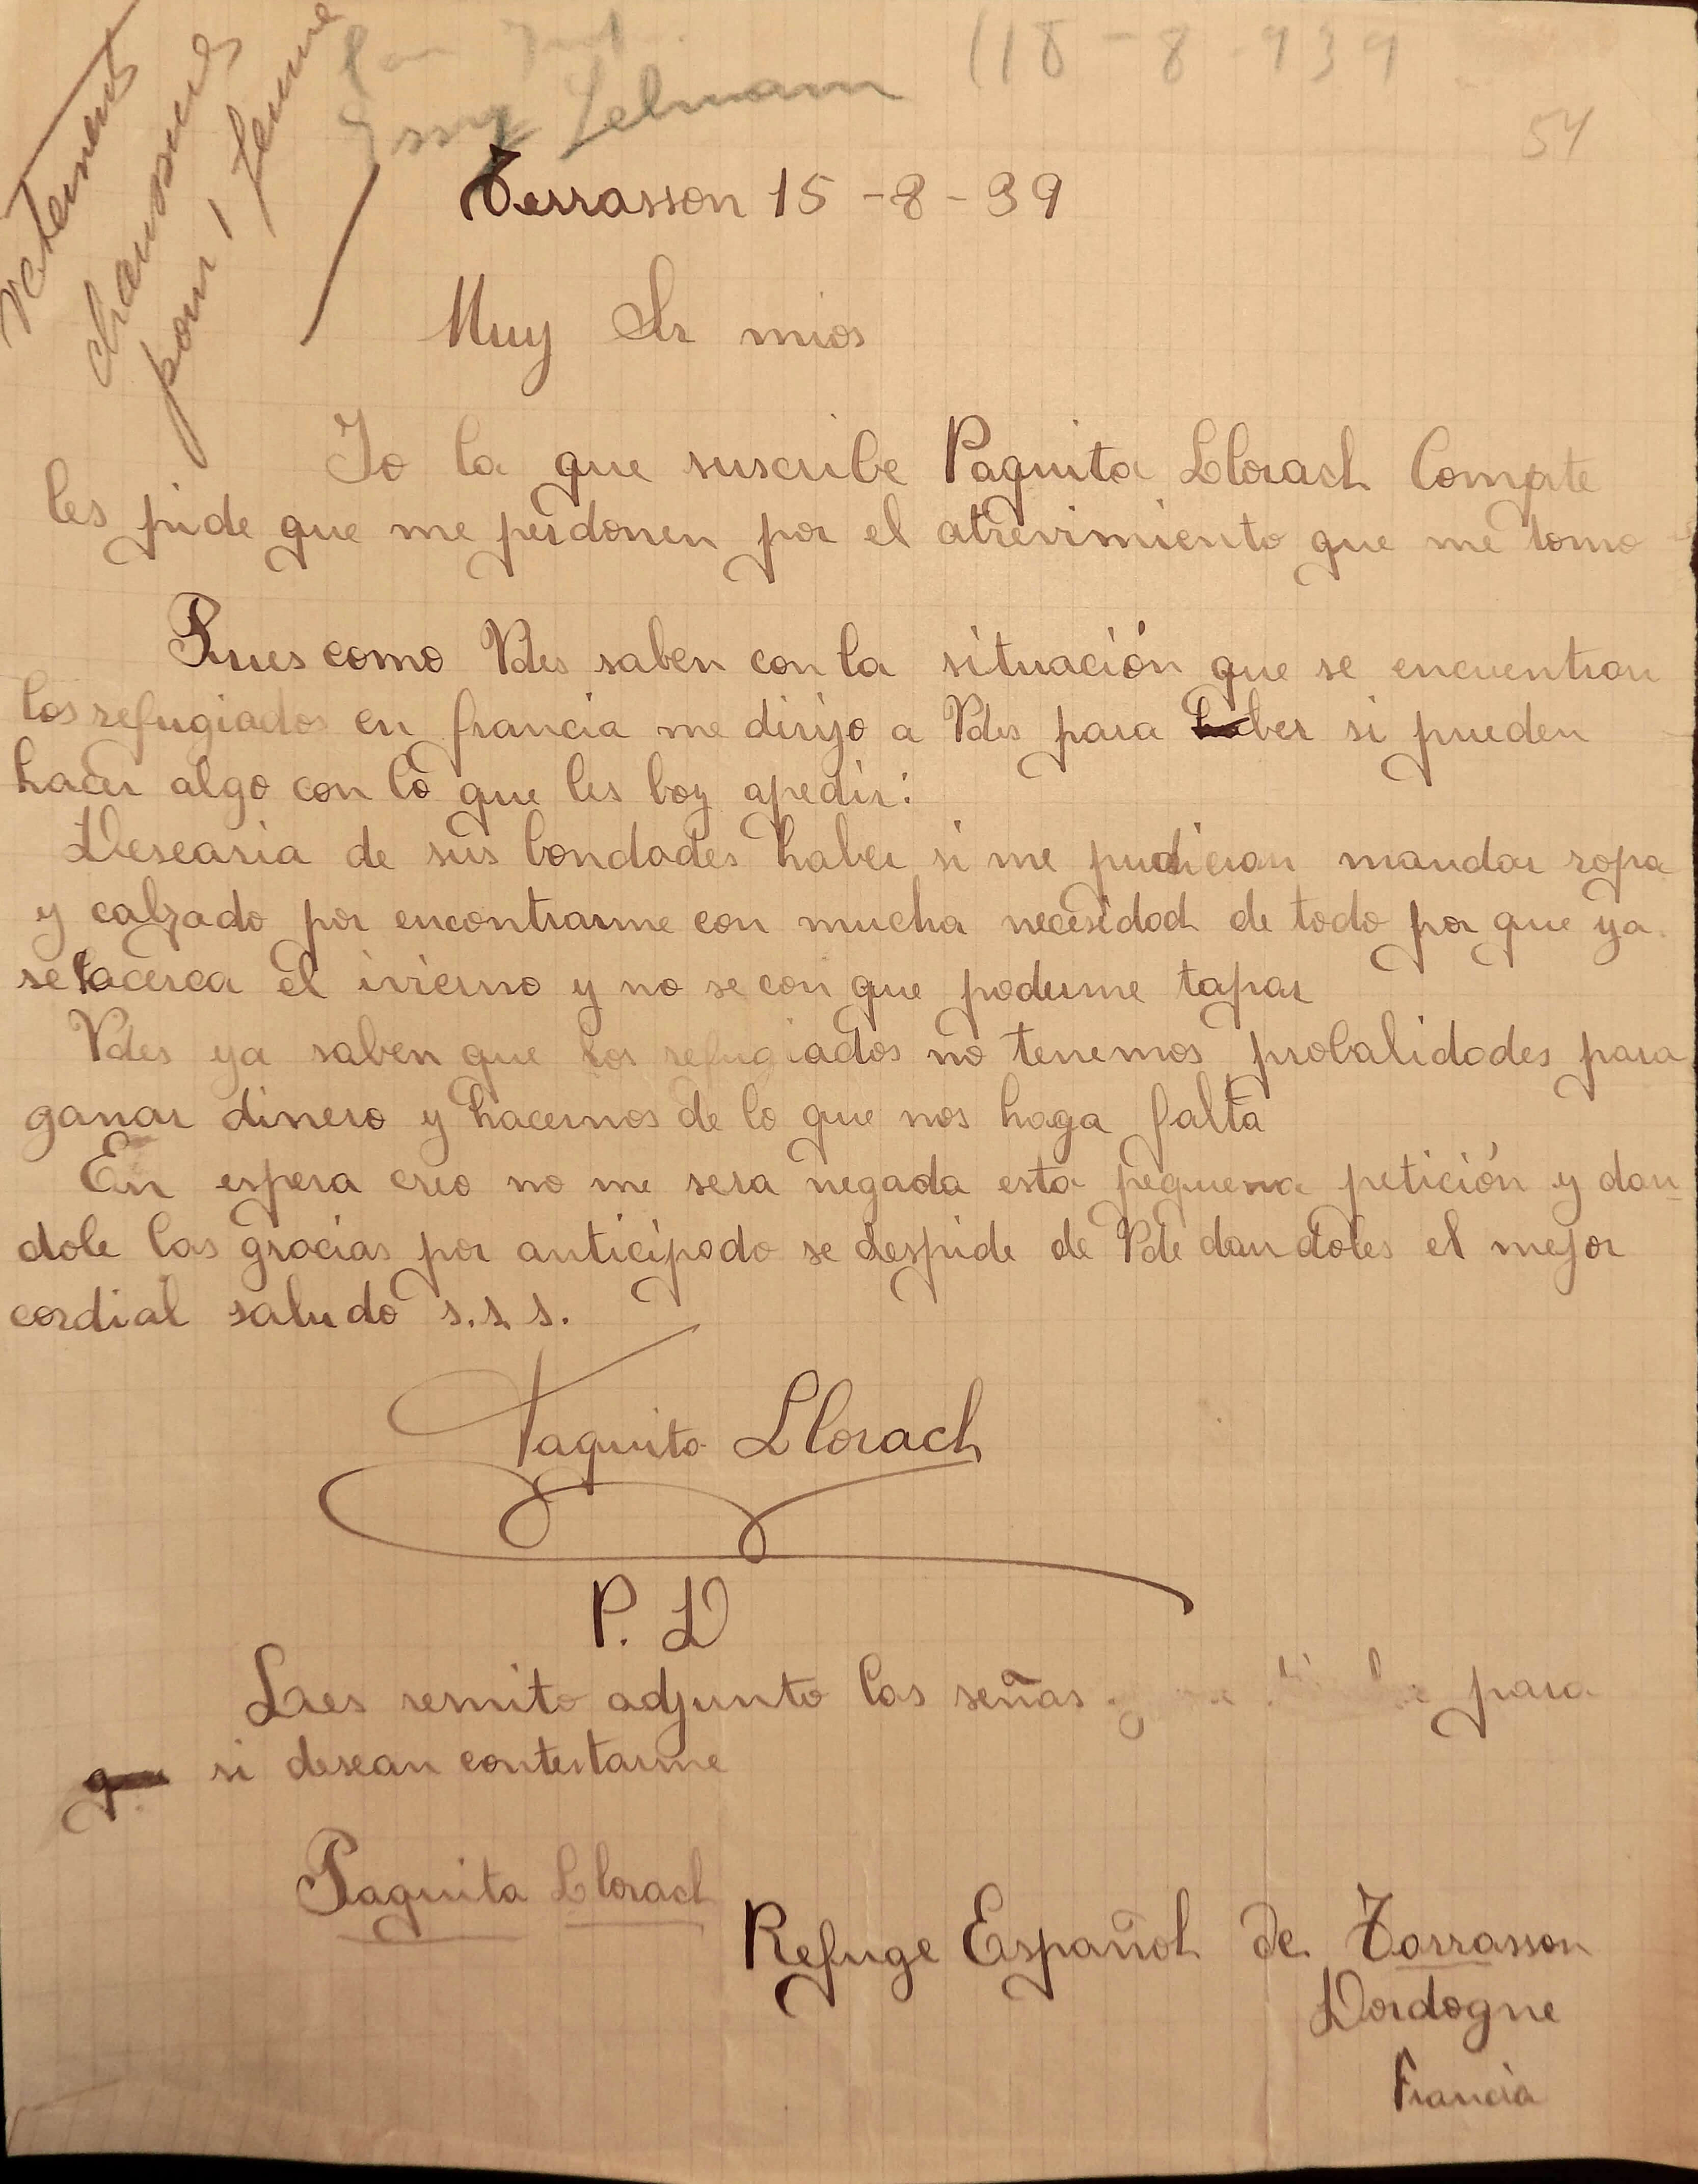 vetements
chaussures
pour 1 femme
Lehmann
(18-8-939
54
Terrasson 15-8-39
Muy Sr mios
Yo la que suscribe Paquita Llorach Compte
les pide que me perdonen por el atrevimiento que me tomo
Pues como Vdes saben con la situación que se encuentran
los refugiados en francia me dirijo a Vdes para haber si pueden
hacer algo con lo que les boy apedir:
Desearia de sus bondades haber si me pudieran mandar ropa
y calzado por encontrarme con mucha necesidad de todo por que ya
se acerca el invierno y no se con que poderme tapar
Vdes ya saben que los refugiados no tenemos probalidades para
ganar dinero y hacernos de lo que nos haga falta
En espera creo no me sera negada esta pequena petición y dan
dole las gracias por anticipado se despide de Vde dandoles el mejor
cordial saludo s.s.s.
Paquita Llorach
P. D
Les remito adjunto las señas para
si desean contestarme
Paquita Llorach
Refuge Español de Tarrasson
Dordogne
Francia